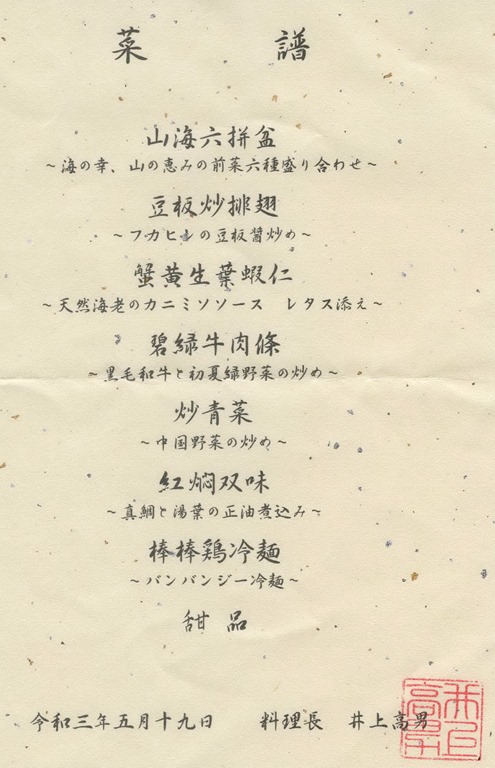 菜 譜
山海六拼盆
～海の幸、山の恵みの前菜六種盛り合わせ～
豆板炒排翅
～フカヒレの豆板醤炒め～
蟹黄生葉蝦仁
～天然海老のカニミソソース レタス添え～
碧緑牛肉條
～黒毛和牛と初夏緑野菜の炒め～
炒青菜
～中国野菜の炒め～
紅焖双味
～真鯛と湯葉の正油煮込み～
棒棒鶏冷麺
～バンバンジー冷麺～
甜品
令和三年五月十九日 料理長 井上高男
井上高男